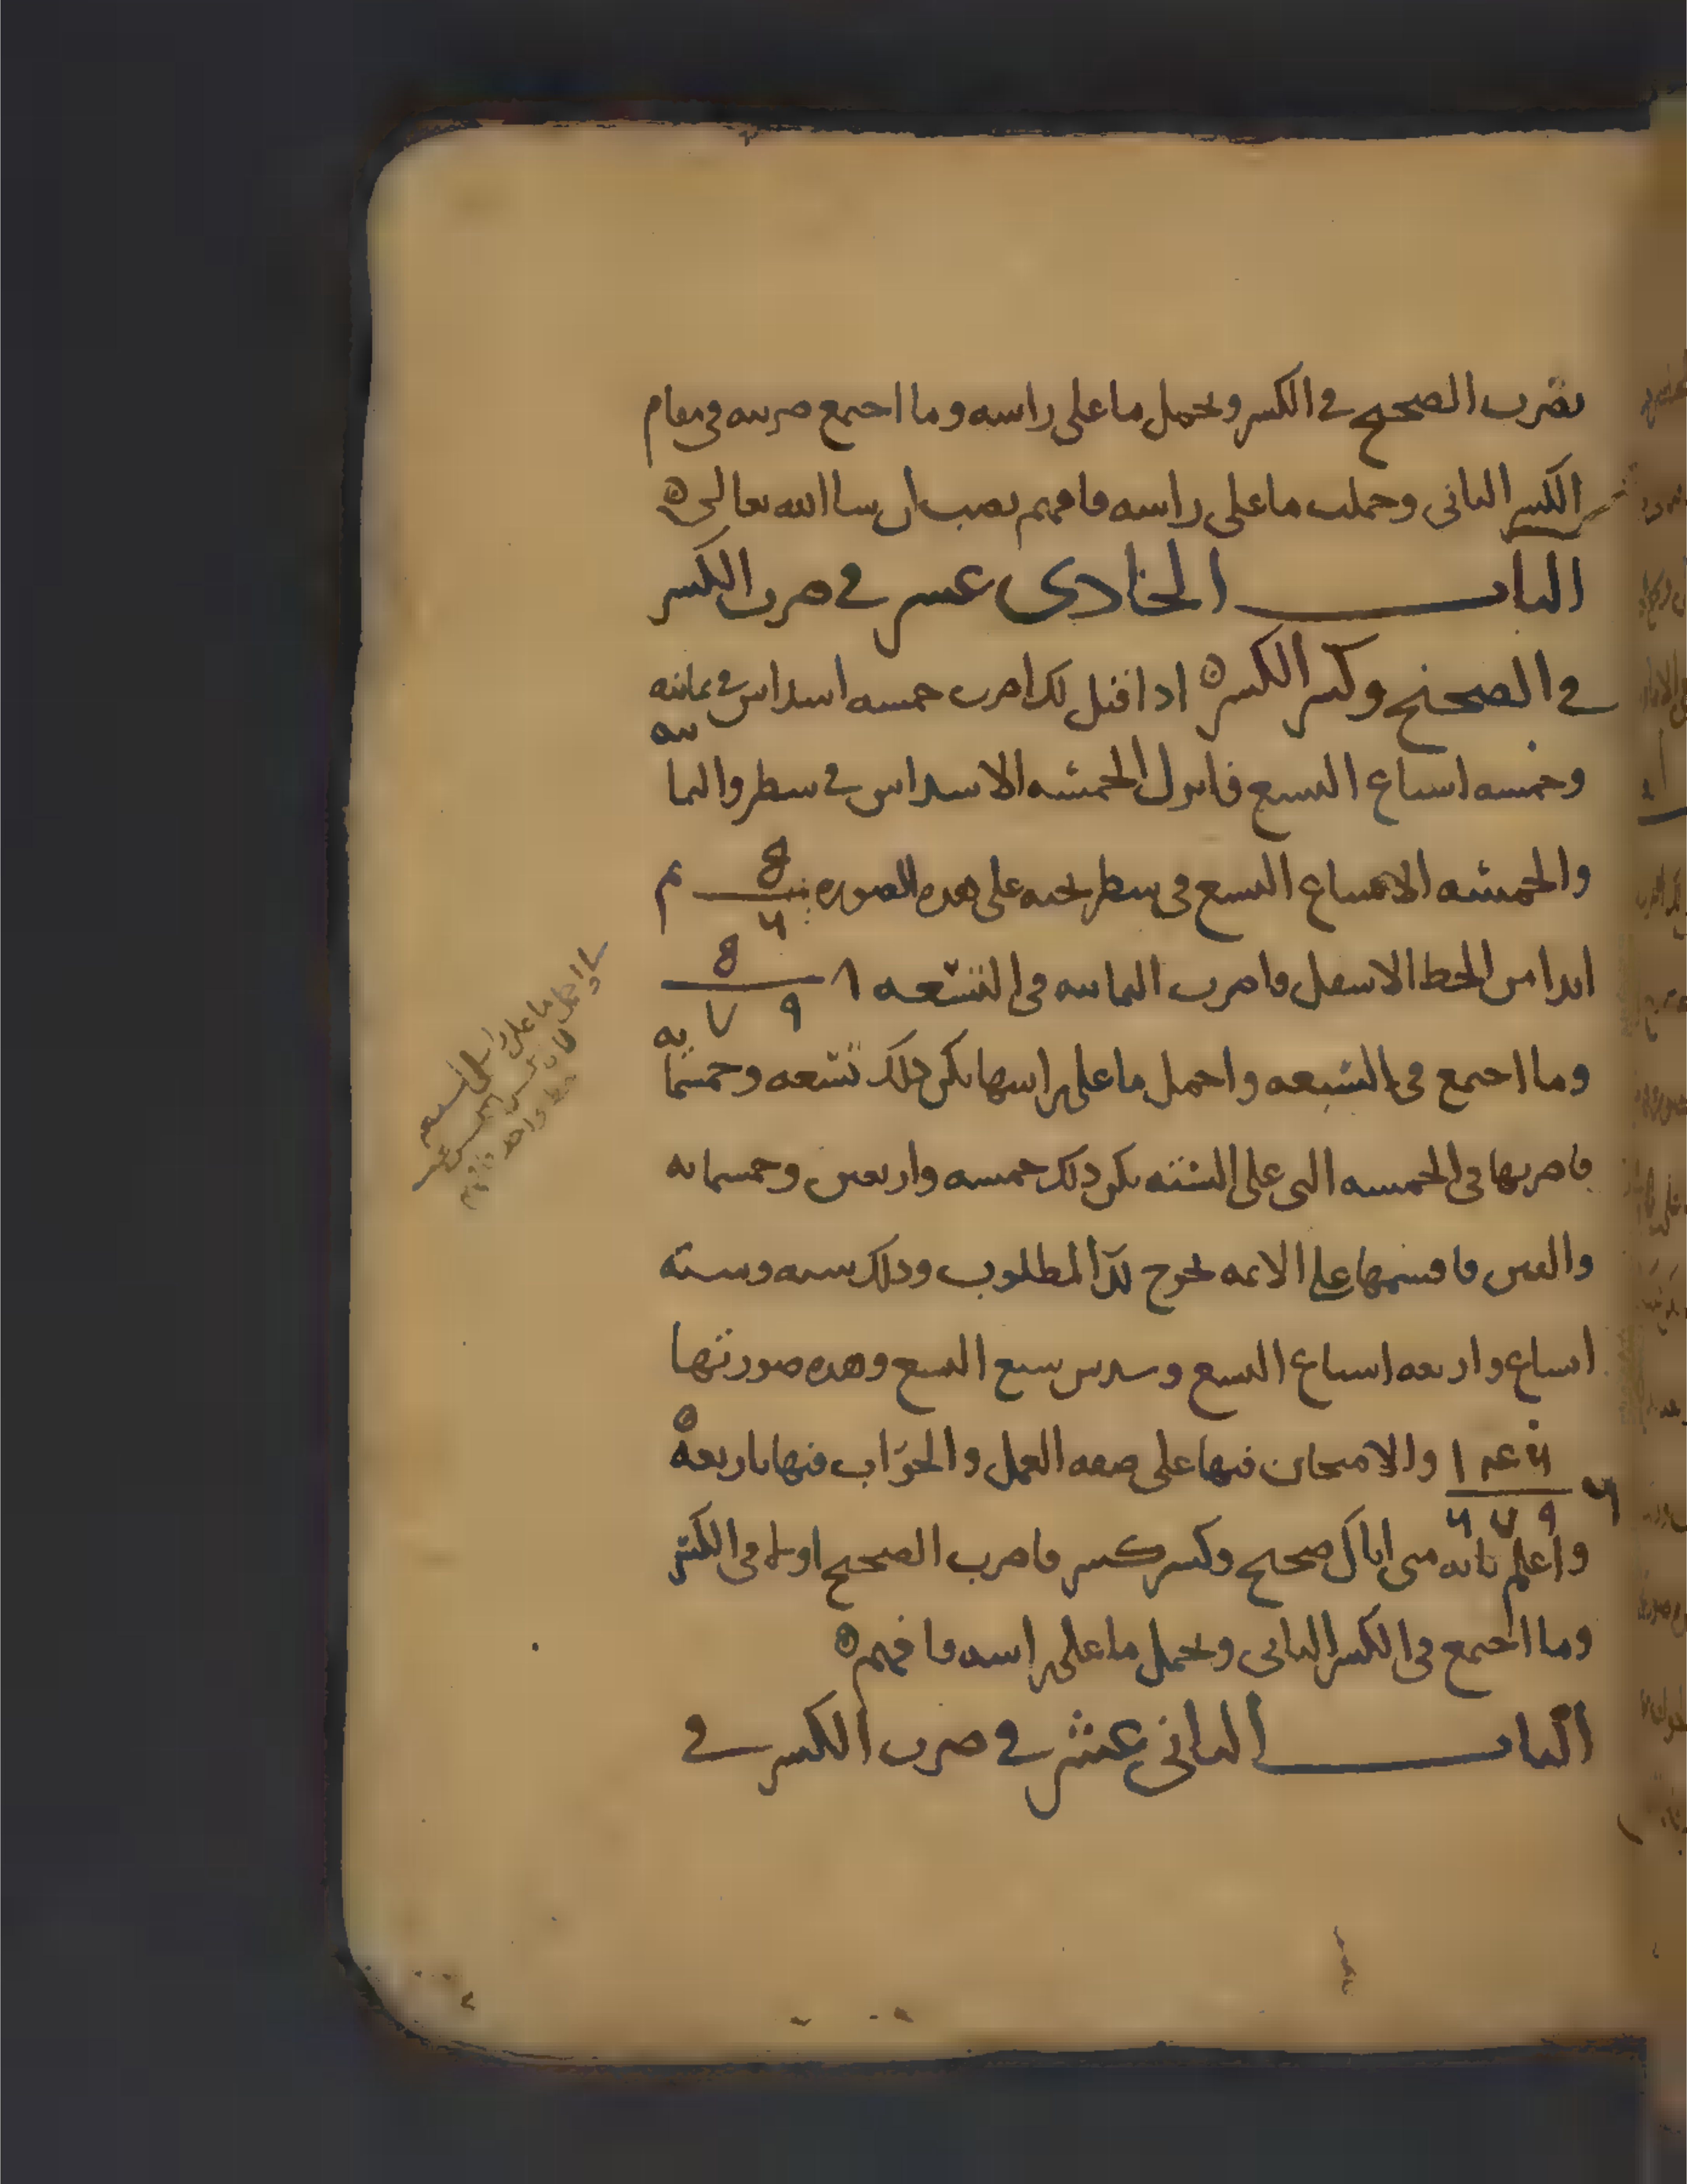 تضرب الصحيح في الكسر وتحمل ما على راسه وما اجتمع ضربته في مقام
الكسر الثاني وحملت ما على راسه فافهم تصب ان شا الله تعالى ه
الباب الحادي عشر في ضرب الكسر
في الصحيح وكسر الكسر ه اذا قيل لك اضرب خمسه اسداس في ثمانيه
وخمسه اسباع التسع فانزل الخمسه الاسداس في سطر والثمانيه
والخمسه الاسباع التسع في سطر تحته على هذه الصوره 8/4 ثم
ابدا من الخط الاسفل فاضرب الثمانيه في التسعه ٨ 8/٧ ٩
وما اجتمع في السبعه واحمل ما على راسها يكن ذلك تسعه وخمسمايه
فاضربها في الخمسه التي على السته يكن ذلك خمسه واربعين وخمسمايه
والفين فاقسمها على الائمه يخرج لك المطلوب وذلك سته وسته
اتساع واربعه اسباع التسع وسدس سبع التسع وهذه صورتها
والامتحان فيها على صفه العمل والجواب فيها باربعه ه
واعلم بانه متى اتاك صحيح وكسر كسر فاضرب الصحيح اولا في الكسر
وما اجتمع في الكسر الثاني وتحمل ما على راسه فافهم ه
الباب الثاني عشر في ضرب الكسر في